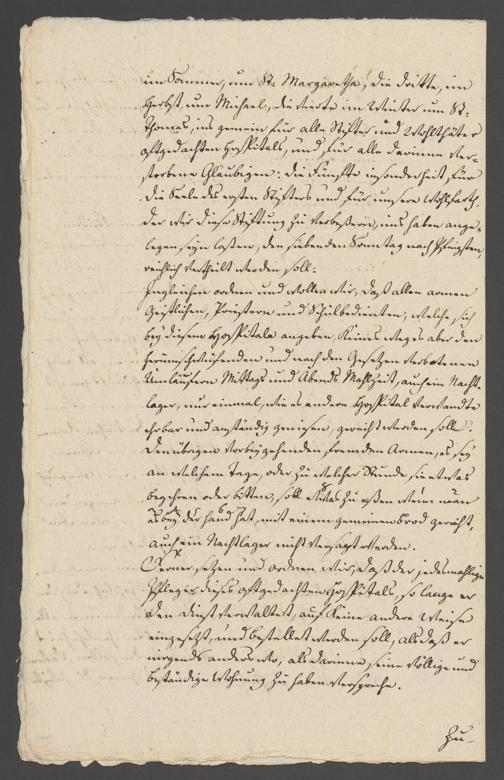 im Sommer, um St: Margaretha, die dritte, im
Herbst, um Michael, die vierte im Winter um St:
Thomas, ins gemein für alle Stifter und Wohlthäter
oftgedachten Hospitals, und für alle darinne ver-
storbene Gläubigen: die Fünfte insonderheit, für
die Seele des ersten Stifters und für unsere Wohlfarth,
der wir diese Stifftung zu verbeßern, uns haben ange-
legen seyn laßen, den siebenden Sonntag nach Pfingsten,
reichlich vertheilt werden soll.
Ingleichen ordnen und wollen wir, daß allen armen
Geistlichen, Priestern und Schulbedienten, welche, sich
bey diesem Hospitale angeben, Keines weges aber den
herumschweifenden und nach den Gesetzen verbotenen
Umläufern Mittags und Abends Mahlzeit, auch ein Nacht-
lager, nur einmal, wie es andere Hospital Verwandte
ehrbar und anständig genießen, gereicht werden solle.
Den übrigen vorbeygehenden, fremden Armen, es sey
an welchem Tage, oder zu welcher Stunde sie etwas
begehren oder bitten, soll etwas zu eßen wenn man
bey der Hand hat, mit einem gemeinen Brod gereicht,
auch ein Nachtlager nicht versagt werden.
Ferner setzen und ordnen wir, daß der jedesmahlige
Pfleger dieses oftgedachten Hospitals, so lange er
den Dienst verwaltet, auf Keine andere Weise
eingesetzt, und bestellet werden soll, als daß er
nirgends anderswo, als darinne seine völlige und
beständige Wohnung zu haben verspreche.
Zu-